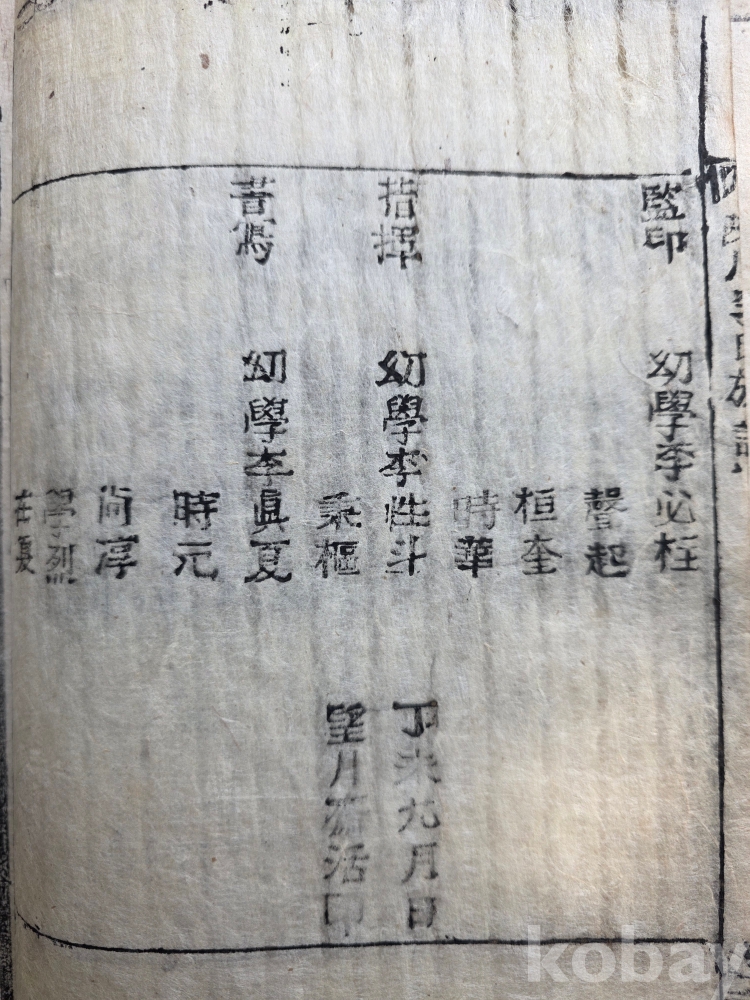 監印 幼學李必柱
聲起
桓奎
時華
指揮 幼學李性斗
秉樞
書寫 幼學李眞夏
時元
尙淳
學烈
丁未九月日
望月 活印
李氏族譜
kobay